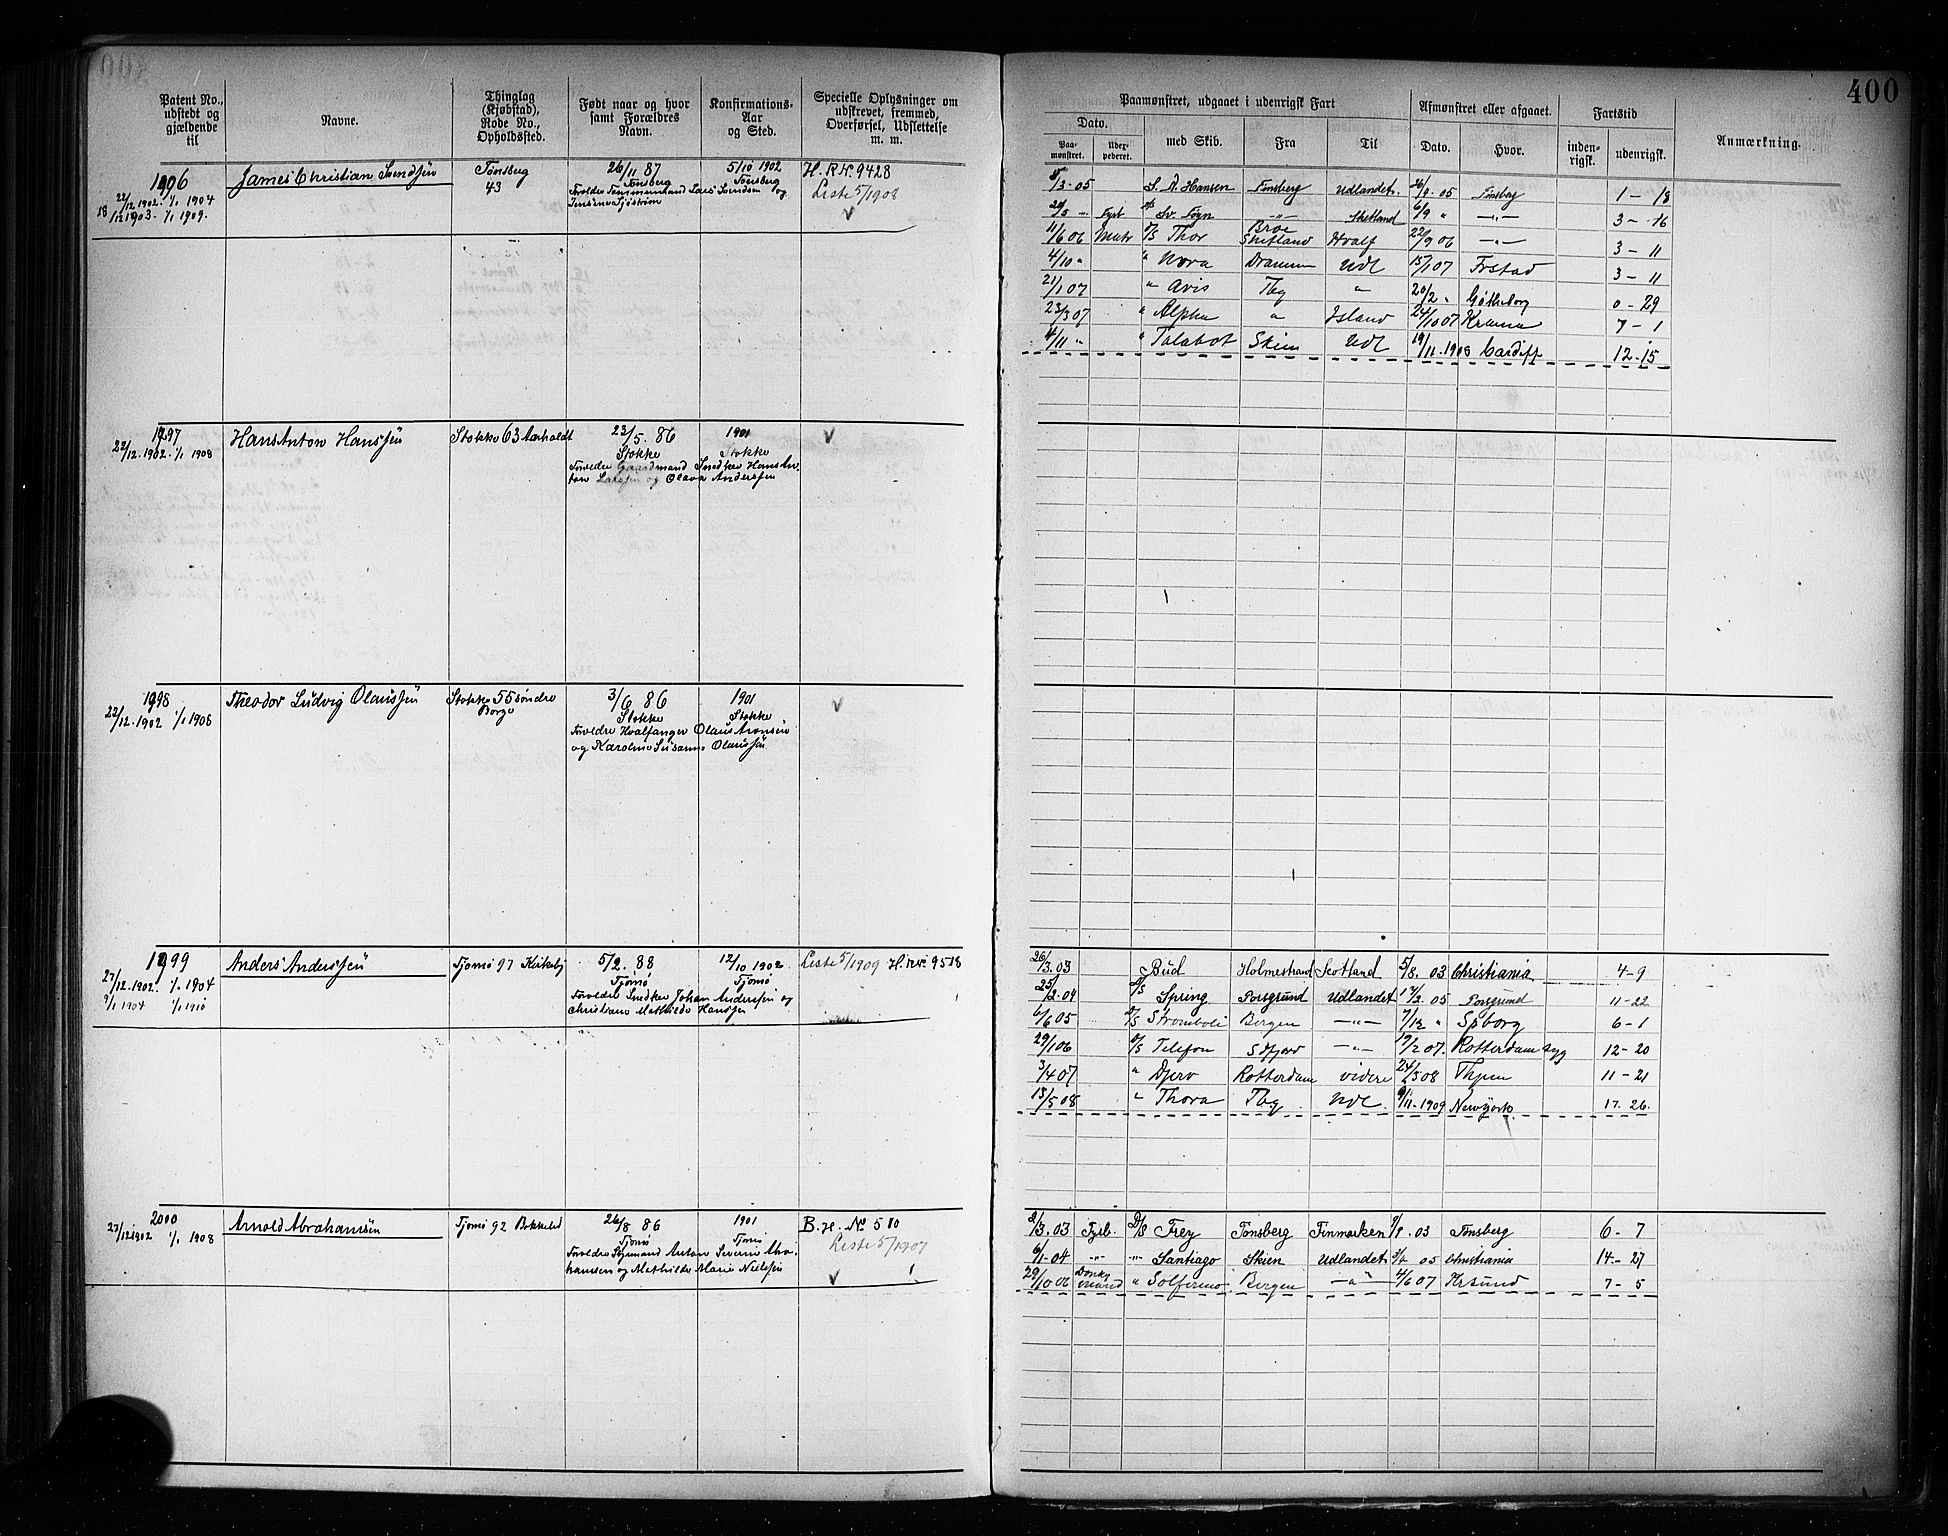 400
Patent No., udstedt og gjældende til
Navne.
Thinglag (Kjøbstad), Rode No., Opholdssted.
Født naar og hvor samt Forældres Navn.
Konfirmations-Aar og Sted.
Specielle Oplysninger om udskrevet, fremmed, Overførsel, Udslettelse m. m.
Paamønstret, udgaaet i udenrigsk Fart
Afmønstret eller afgaaet.
Fartstid
Anmærkning.
Dato.
med Skib.
Fra
Til
Dato.
Hvor.
inden-rigsk.
udenrigsk.
Paa-mønstret.
1996
22/12 1902. 1/1 1904
18/12 1903. 1/1 1909.
James Christian Svendsen
Tønsberg
43
26/11 87
Tønsberg
Forældre Tømmermand Lars Svendsen og
5/10 1902
Tønsberg
H. R. No. 9428
Liste 5/1908
/3-05 S. A. Hansen Tønsberg Udlandet. 26/9 05 Tønsberg 1 - 18
20/5 " Fyrb Sv. Foyn -"- Shetland 6/9 " -"- 3 - 16
11/6 06 Matr D/S Thor Shetland Hvalf 22/9 06 -"- 3 - 11
4/10 " " Nora Drammen Udl 15/1 07 Frstad 3 - 11
21/1 07 " Avis Tbg " 20/2 " Gøtheborg 0 - 29
23/3 07 " Alpha " Island 24/10 07 7 - 1
4/11 " " Talabot Skien Udl 19/11-1908 Cardiff 12-15
1997
22/12.1902. 1/1 1908
Hans Anton Hanssen
Stokke 63 Aarholdt
23/5. 86
Stokke
Forældre Gaardmand Snedker Hans An-
ton Larssen og Olava Anderssen
1901
Stokke
1998
22/12.1902 1/1 1908
Theodor Ludvig Olaussen
Stokke 55 søndre
Borge
3/6 86
Stokke
Forældre Hvalfanger Olaus Aronsen
og Karoline Susanne Olaussen
1901
Stokke
1999
27/12.1902. 1/1.1904
9/1 1904 1/1 1910
Anders Anderssen
Tjømø 97 Kirkeby
5/2. 88
Tjømø
Forældre Snedker Johan Anderssen og
Christiane Mathilde Hanssen
12/10 1902
Tjømø
Liste 5/1909 H. R. No. 9518
26/3.03 Bud Holmestrand Scotland 5/8. 03 Christiania 4-9
25/2.04 D/S Spring Porsgrund Udlandet 17/2 05 Porsgrund 11-22
6/6 05 D/S Stromboli Bergen -"- 7/12 " Spborg 6-1
29/1 06 D/S Telefon Sdfjord -"- 19/2 07. Rotterdam syg 12-20
3/4 07 " Djerv Rotterdam videre 24/3 08 11-21
13/5 08 " Thora Tbg Udl 9/11-1909 Newyork 17. 26.
2000
27/12 1902 1/1 1908
Arnold Abrahamsen
Tjømø 92
26/8 86
Tjømø
Forældre Sømand Anton Severin Abra-
hamsen og Mathilde Marie Nielsen
1901
Tjømø
B. H. No 510
Liste 5/1907
2/3.03 Fyrb. D/S Frey Tønsberg Finmarken 9/9. 03 Tønsberg 6 - 7
6/1-04 -"- -"- Santiago Skien Udlandet 05 Christiania 14 - 27
29/10 06 Donkymand " Solferino Bergen -"- 4/6 07 Krsund 7 - 5